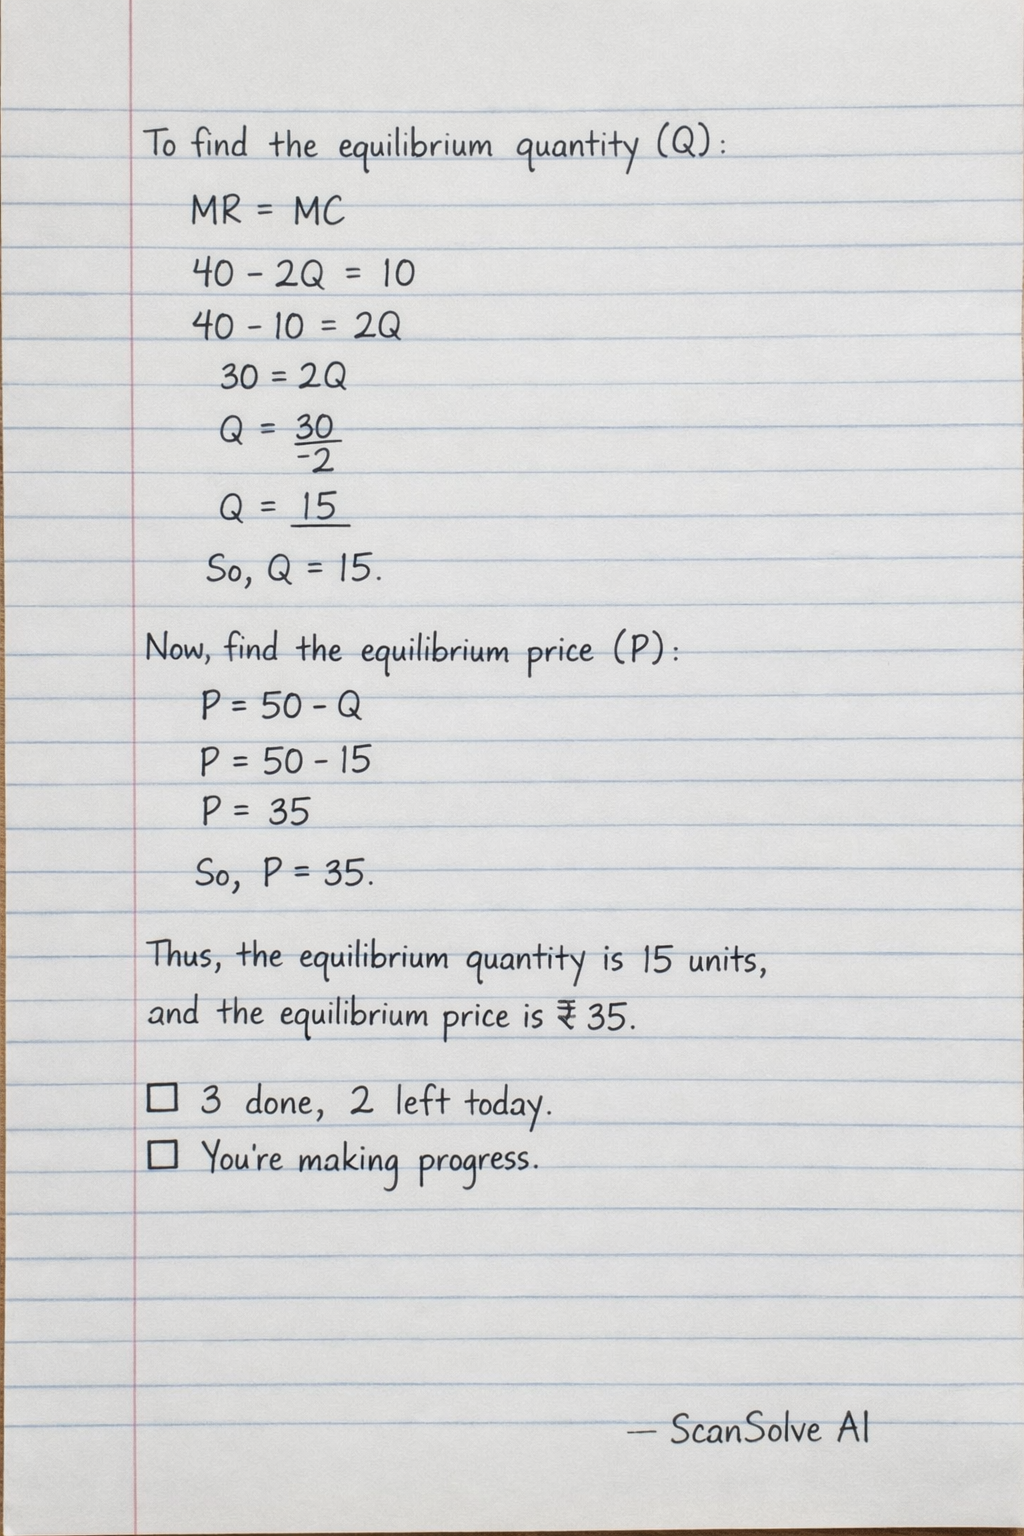 To find the equilibrium quantity (Q):
MR = MC
40 - 2Q = 10
40 - 10 = 2Q
30 = 2Q
Q = 30
-2
Q = 15
So, Q = 15.
Now, find the equilibrium price (P):
P = 50 - Q
P = 50 - 15
P = 35
So, P = 35.
Thus, the equilibrium quantity is 15 units,
and the equilibrium price is ₹ 35.
☐ 3 done, 2 left today.
☐ You're making progress.
— ScanSolve AI